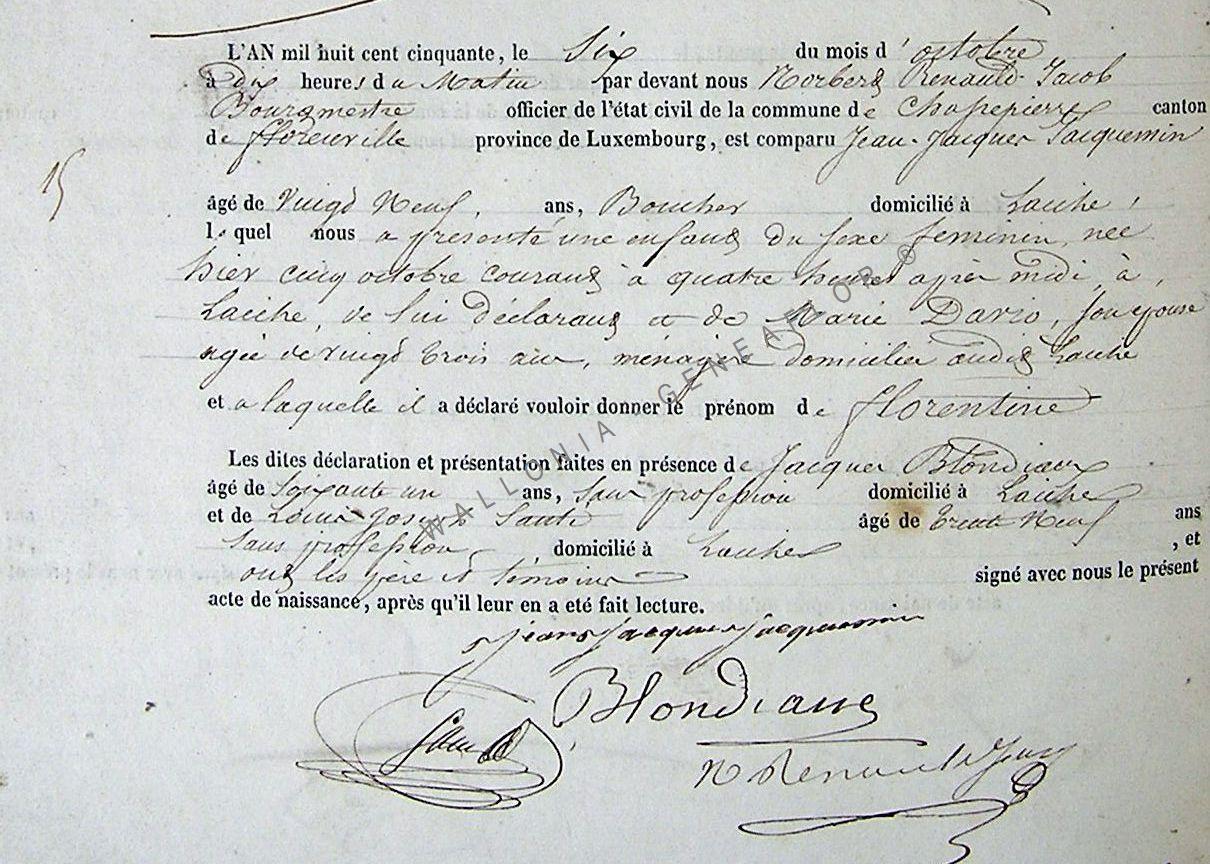 L'AN mil huit cent cinquante, le six du mois d'octobre
à dix heures du Matin par devant nous Norbert Renauld-Jacob
Bourgmestre officier de l'état civil de la commune de Chassepierre canton
de florenville province de Luxembourg, est comparu Jean-Jacques Jacquemin
15
âgé de vingt Neuf, ans, Boucher domicilié à Laiche,
lequel nous a présenté une enfant du sexe feminin, née
hier cinq octobre courant à quatre heures après midi, à
Laiche, de lui déclarant et de Marie Dario, son épouse
agée de vingt trois ans, ménagère domiciliée audit Laiche
et a laquelle il a déclaré vouloir donner le prénom de florentine
Les dites déclaration et présentation faites en présence de Jacques Blondiaux
âgé de soixante un ans, sans profession domicilié à Laiche
et de Louis Joseph âgé de trente Neuf ans
sans profession, domicilié à Laiche , et
ont les père et témoins signé avec nous le présent
acte de naissance, après qu'il leur en a eté fait lecture.
Jean Jacques Jacquemin
Blondiaux
N Renauld Jacob
WALLONIA GENEALOR ®